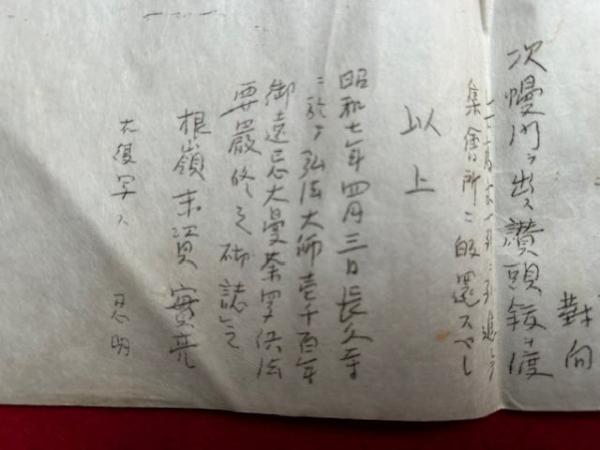 對向
次幔門ヲ出入讃頭鈸ヲ渡
集會所ニ皈還スベし
以上
昭和七年四月三日長久寺
ニ於テ弘法大師壱千百年
御遠忌大曼荼罗供法
要嚴修之砌誌之
根嶺末資實亮
右復写人 忍明